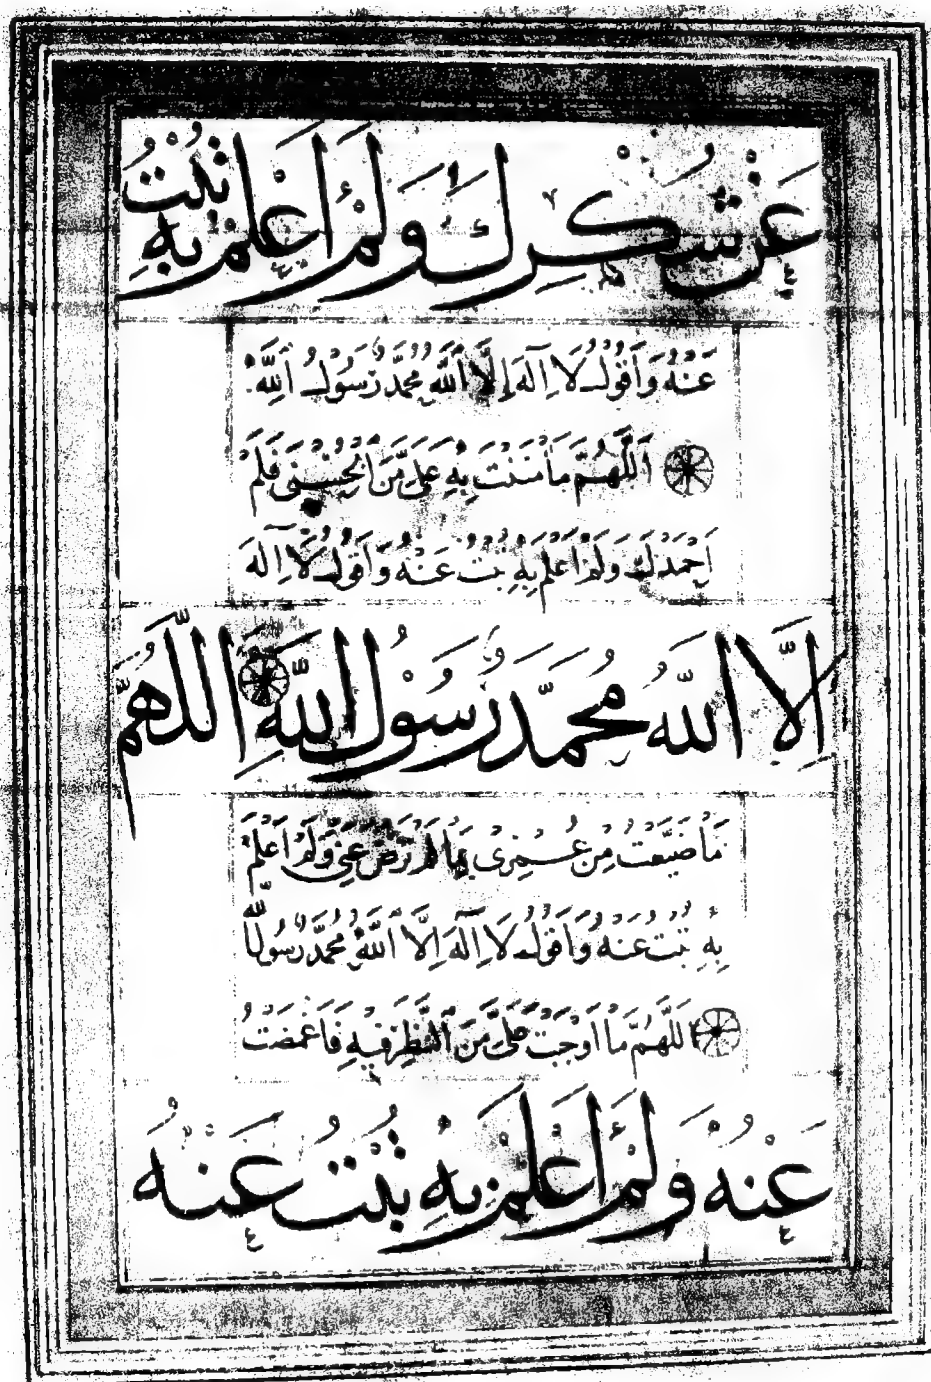 عَنْ شُكْرِكَ وَلَمْ اَعْلَمْ بِهِ تُبْتُ
عَنْهُ وَاَقُولُ لَا اِلٰهَ اِلَّا اللّٰهُ مُحَمَّدٌ رَسُولُ اللّٰهِ
اَللّٰهُمَّ مَا مَنَنْتَ بِهِ عَلَىَّ مِنَ الْحُسْنٰى فَلَمْ
اَحْمَدْكَ وَلَمْ اَعْلَمْ بِهِ تُبْتُ عَنْهُ وَاَقُولُ لَا اِلٰهَ
اِلَّا اللّٰهُ مُحَمَّدٌ رَسُولُ اللّٰهِ اَللّٰهُمَّ
مَا ضَيَّعْتُ مِنْ عُمْرِى بِمَا لَمْ تَرْضَ عَنِّى وَلَمْ اَعْلَمْ
بِهِ تُبْتُ عَنْهُ وَاَقُولُ لَا اِلٰهَ اِلَّا اللّٰهُ مُحَمَّدٌ رَسُولُ اللّٰه
اَللّٰهُمَّ مَا اَوْجَبْتَ عَلَىَّ مِنَ النَّظَرِ فِيهِ فَاَغْمَضْتُ
عَنْهُ وَلَمْ اَعْلَمْ بِهِ تُبْتُ عَنْهُ